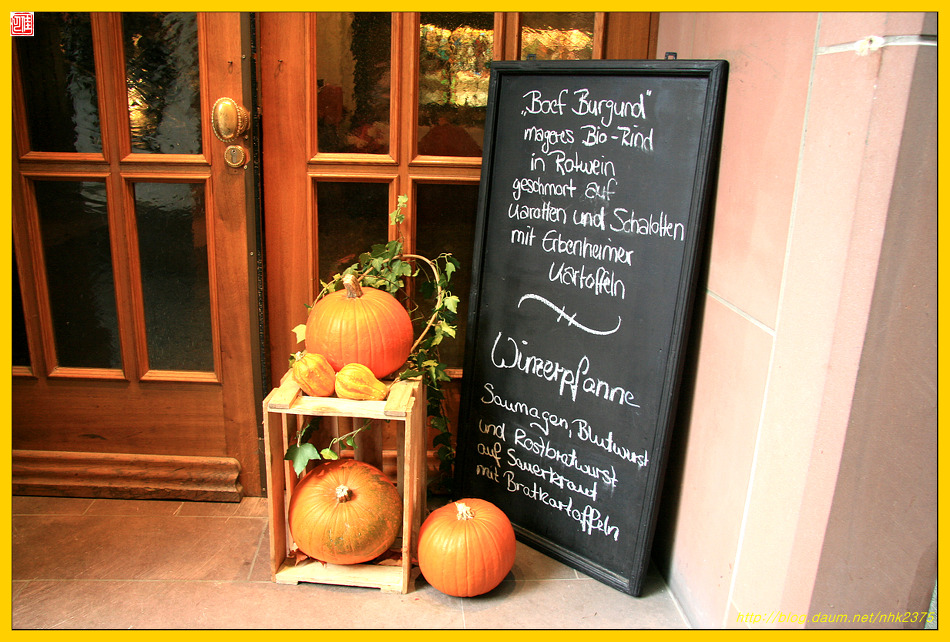 „Boef Burgund"
mageres Bio-Rind
in Rotwein
geschmort auf
Karotten und Schalotten
mit Erbenheimer
Kartoffeln
Winzerpfanne
Saumagen, Blutwurst
und Rostbratwurst
auf Sauerkraut
mit Bratkartoffeln
daum.net/nhk2375